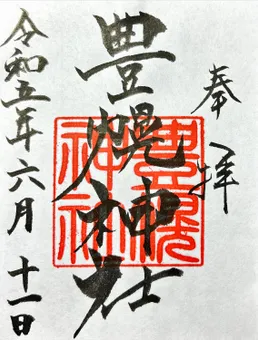 奉拝
豊幌神社
豊幌神社
令和五年六月十一日